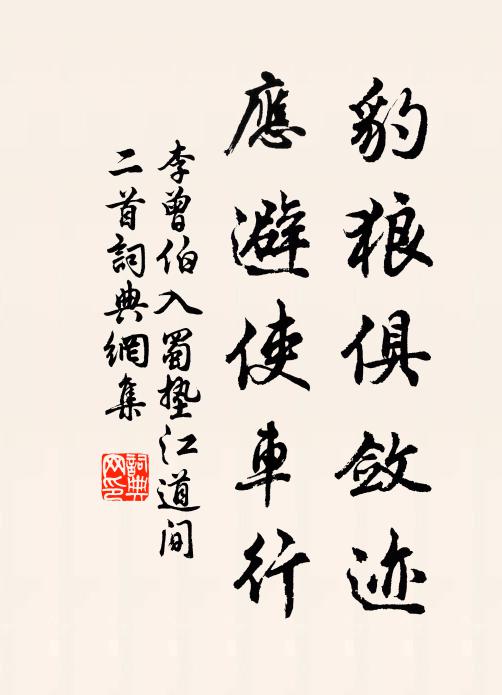 豹狼俱斂迹
應避使車行
李曾伯入蜀墊江道間
二首詞典網集
詞典
网印